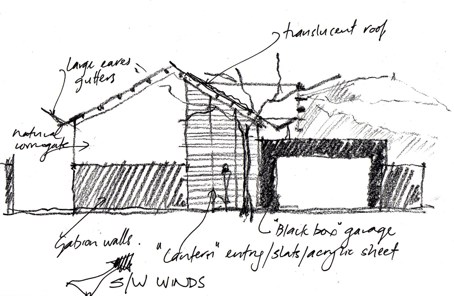 translucent roof
large eaves
gutters
natural
corrugate
"Black box" garage
Gabion walls.
"Lantern" entry/slats/acrylic sheet
S/W WINDS